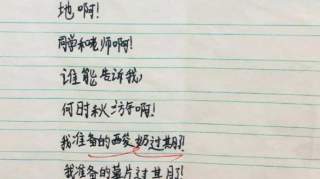 地啊！
同学和老师啊！
谁能告诉我，
何时秋游啊！
我准备的西安奶过期了！
我准备的薯片过期了！